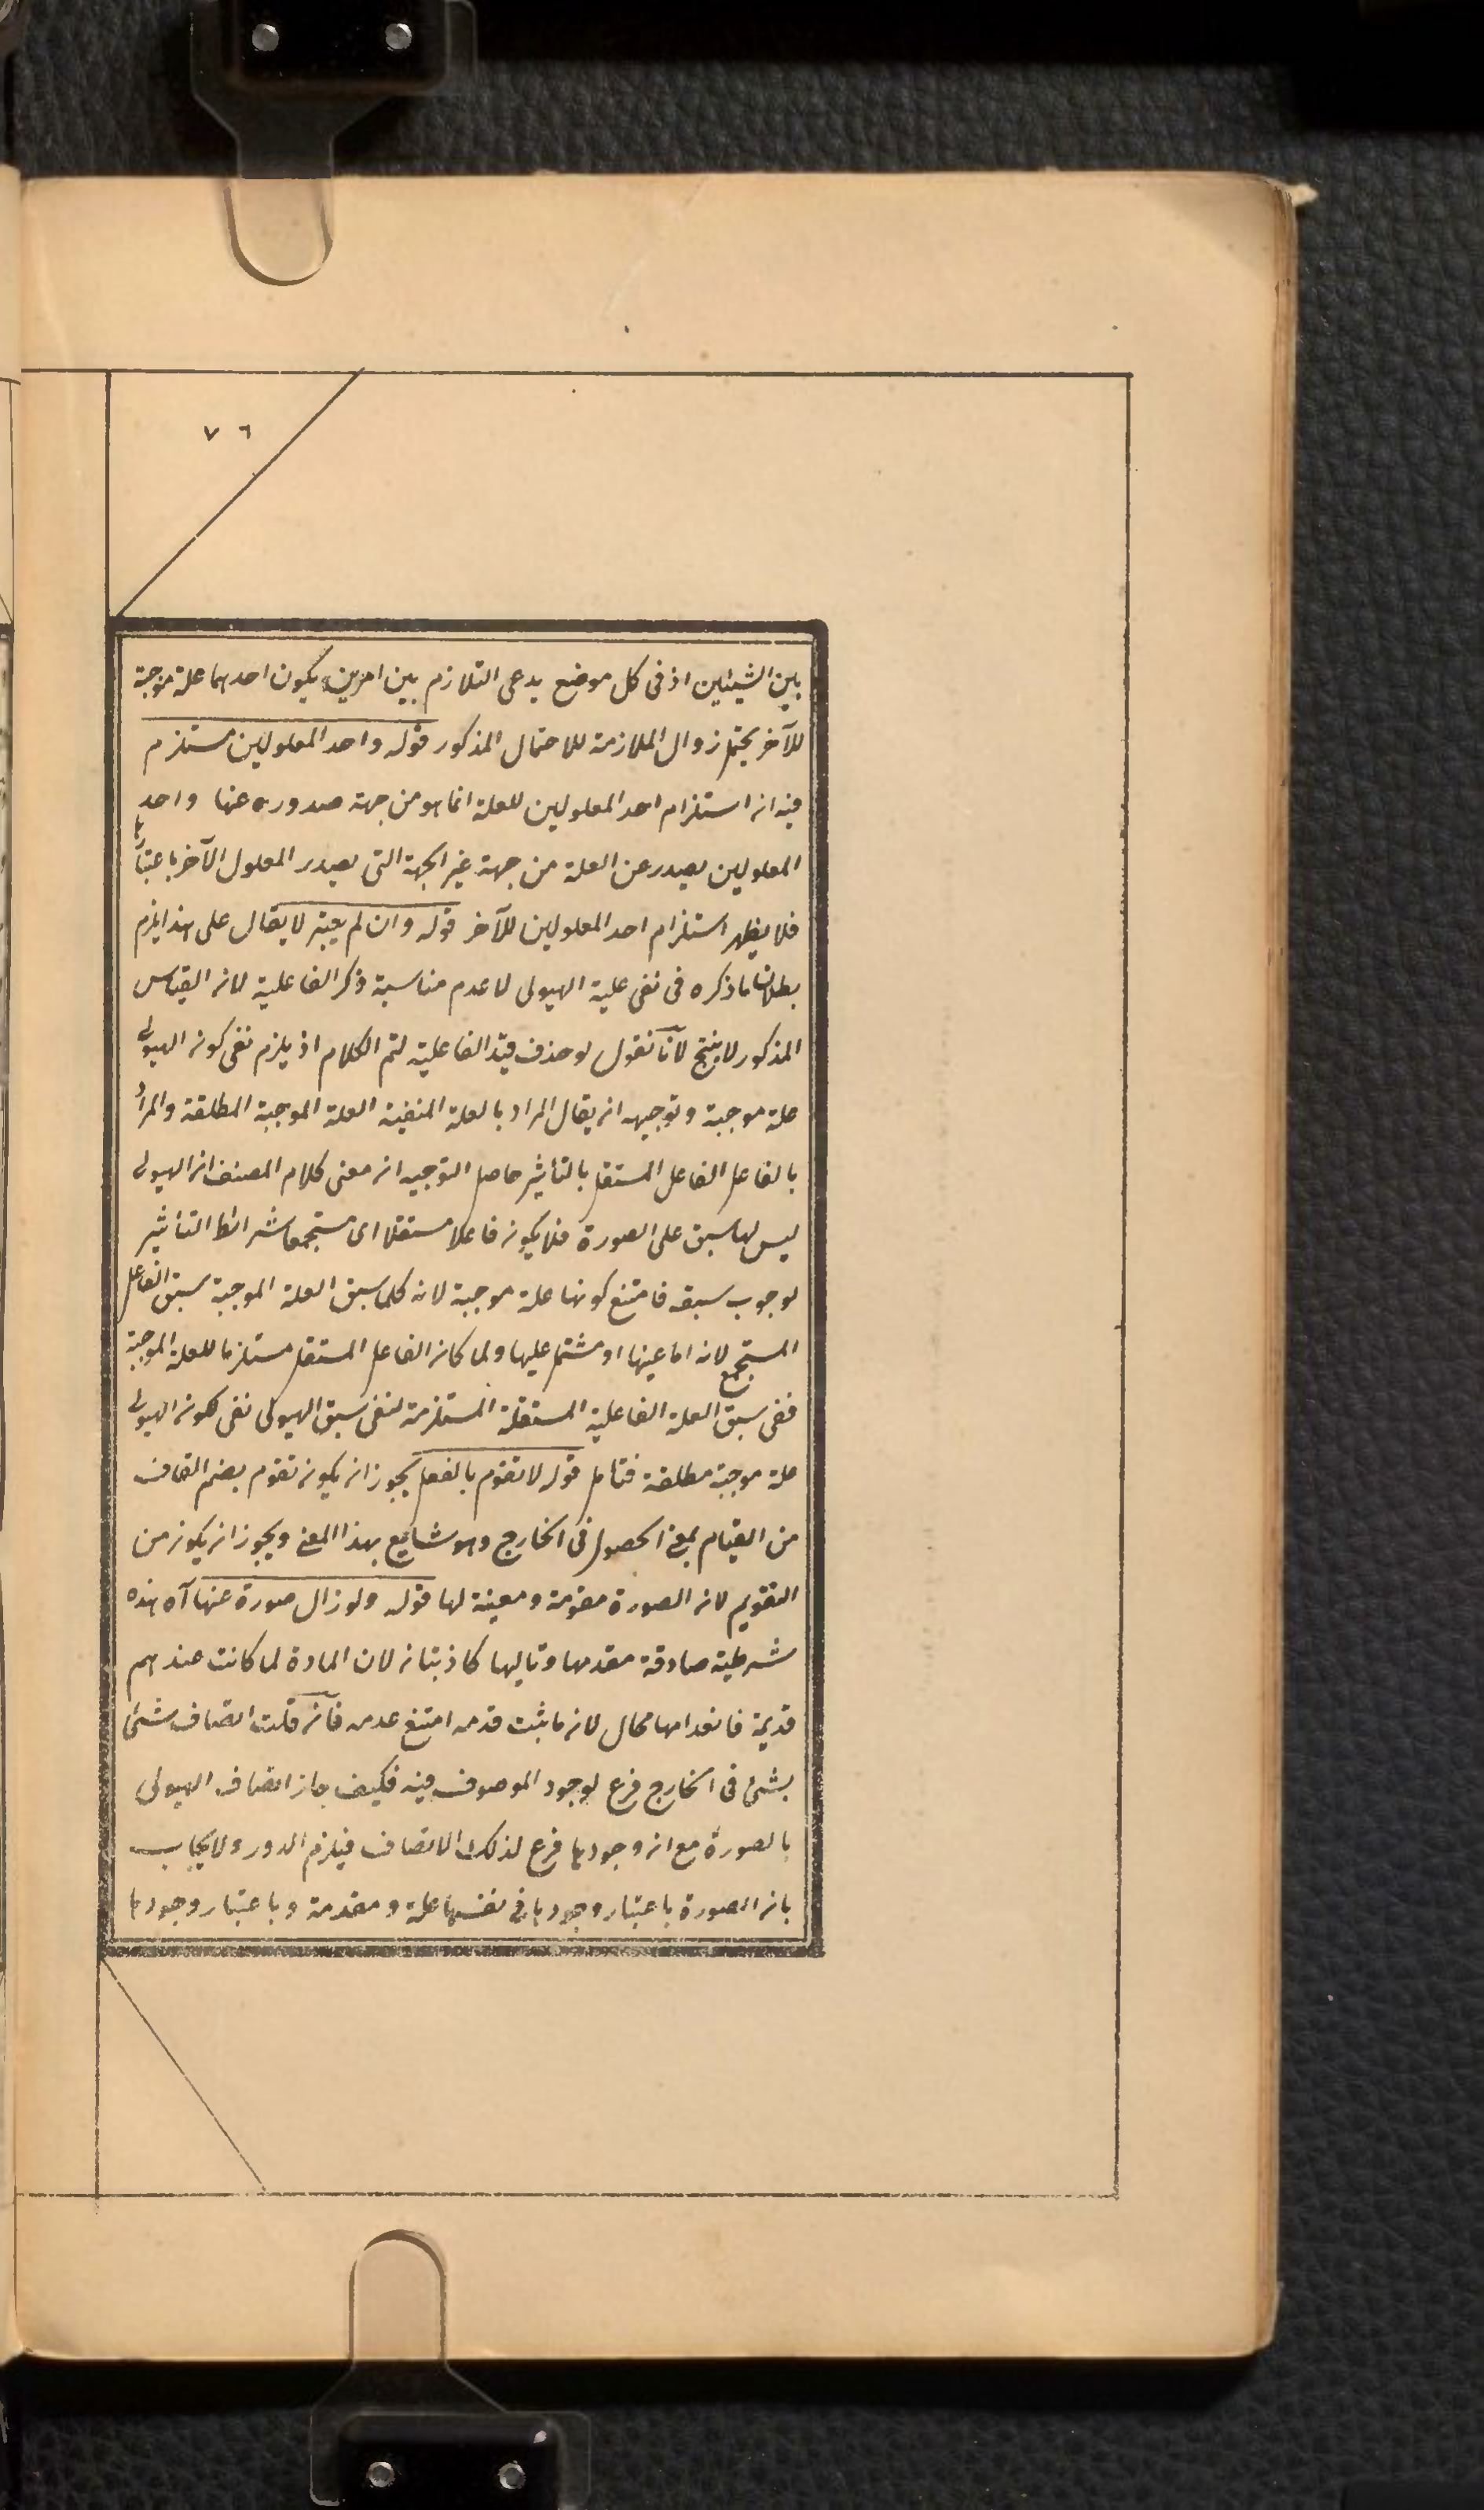 ٧٦
بين الشيئين اذ فى كل موضع يدعى التلازم بين امرين يكون احدهما علة موجبة
للآخر يحتمل زوال الملازمة للاحتمال المذكور قوله واحد المعلولين مستلزم
فيه ان استلزام احد المعلولين للعلة انما هو من جهة صدوره عنها واحد
المعلولين يصدر عن العلة من جهة غير الجهة التى يصدر المعلول الآخر باعتبارها
فلا يظهر استلزام احد المعلولين للآخر قوله وان لم يعتبر لا يقال على هذا يلزم
بطلان ما ذكره فى نفى علية الهيولى لا عدم مناسبة ذكر الفاعلية لان القياس
المذكور لا ينتج لانا نقول لو حذف قيد الفاعلية لتم الكلام اذ يلزم نفى كون الهيولى
علة موجبة وتوجيهه ان يقال المراد بالعلة المنفية العلة الموجبة المطلقة والمراد
بالفاعل الفاعل المستقل بالتأثير حاصل التوجيه ان معنى كلام المصنف ان الهيولى
ليس لها سبق على الصورة فلا يكون فاعلا مستقلا اى مستجمعا شرائط التأثير
لوجوب سبقه فامتنع كونها علة موجبة لانه كلما سبق العلة الموجبة سبق الفاعل
المستجمع لانه اما عينها او مشتمل عليها ولما كان الفاعل المستقل مستلزما للعلة الموجبة
ففى سبق العلة الفاعلية المستقلة المستلزمة لنفى سبق الهيولى نفى كون الهيولى
علة موجبة مطلقة فتامل قوله لا تقوم بالفعل يجوز ان يكون تقوم بضم القاف
من القيام بمعنى الحصول فى الخارج وهو شايع بهذا المعنى ويجوز ان يكون من
التقويم لان الصورة مقومة ومعينة لها قوله ولو زال صورة عنها آه هذه
شرطية صادقة مقدمها وتاليها كاذبتان لان المادة لما كانت عندهم
قديمة فانعدامها محال لان ما ثبت قدمه امتنع عدمه فان قلت اتصاف شئ
بشئ فى الخارج فرع لوجود الموصوف فيه فكيف جاز اتصاف الهيولى
بالصورة مع ان وجودها فرع لذلك الاتصاف فيلزم الدور ولا يجاب
بان الصورة باعتبار وجودها فى نفسها علة ومقدمة وباعتبار وجودها